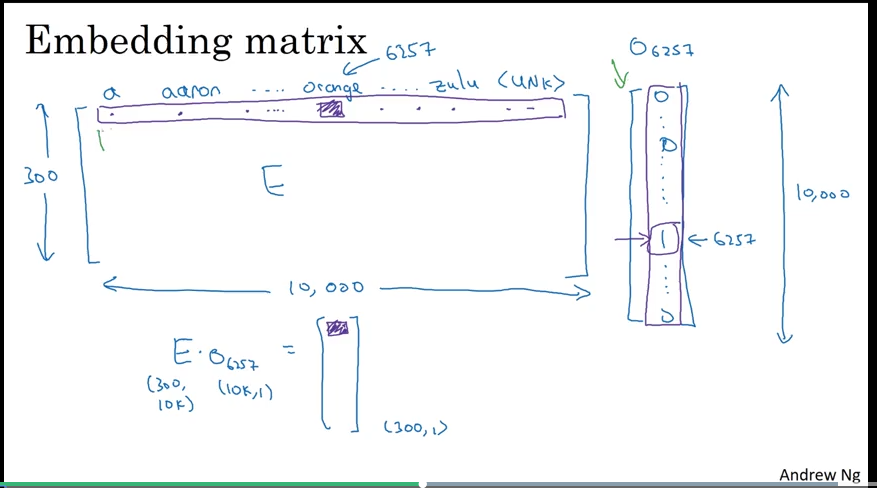 Embedding matrix
6257
O6257
a aaron .... orange .... zulu <UNK>
0
0
300
E
10,000
1 ← 6257
10,000
0
E · O6257 =
(300, 10K) (10K,1)
(300,1)
Andrew Ng